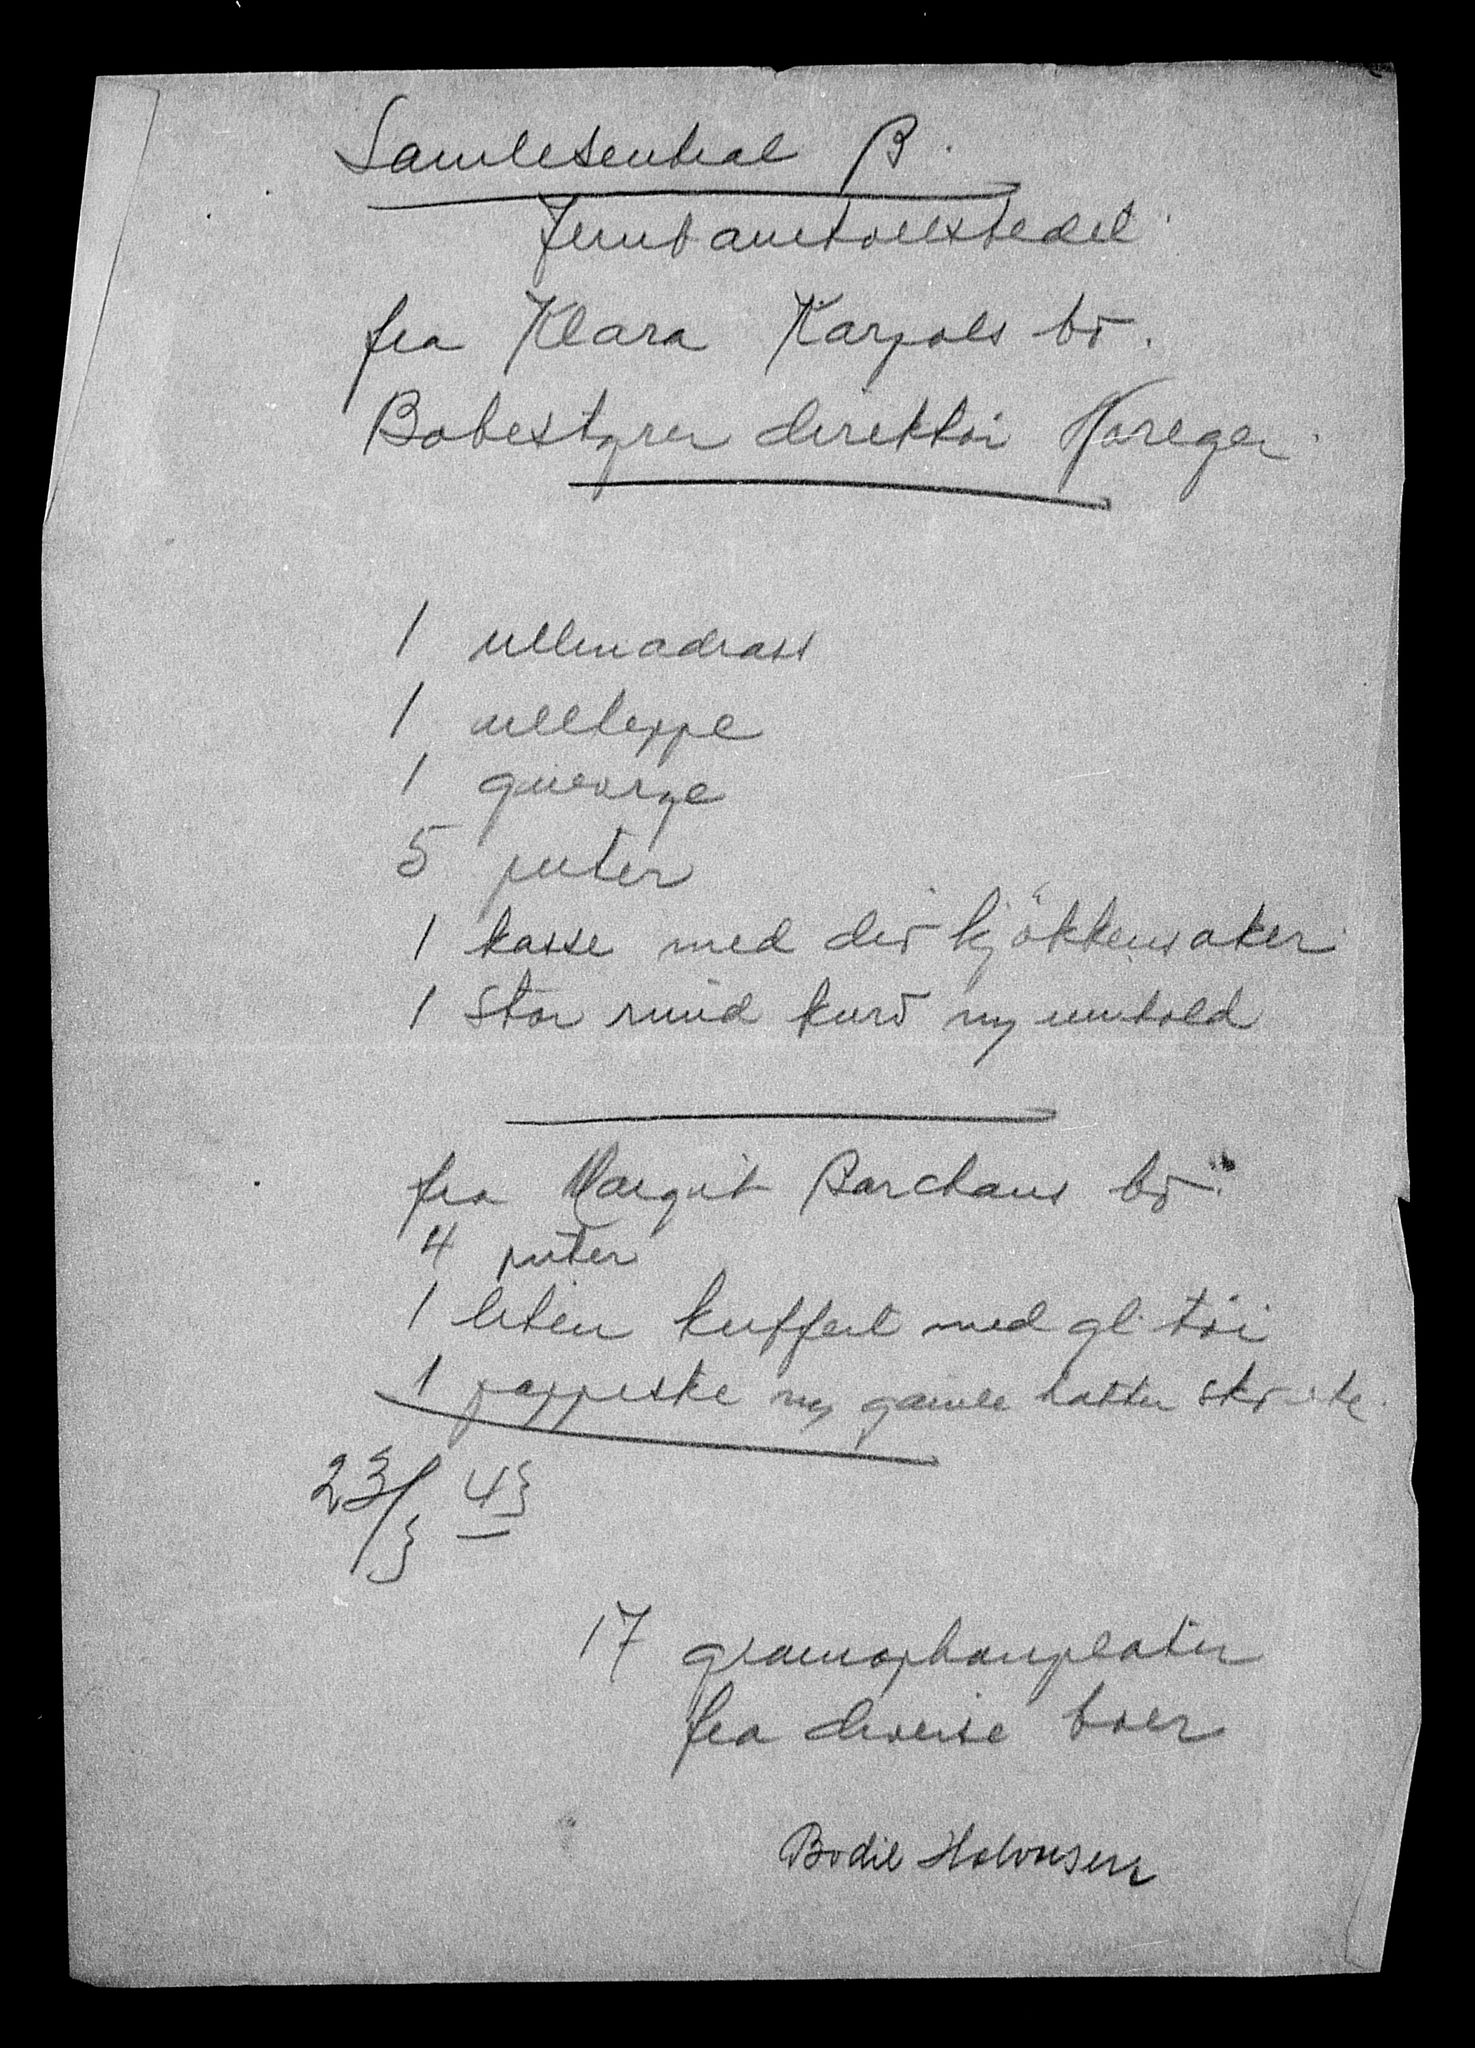 Samlesentral B.
Jernbanetollstedet
fra Klara Karpols bo.
Bobestyrer direktör Horegen
1 ullmadrass
1 ullteppe
1
5 puter
1 kasse med div kjökkensaker
1 stor rund kurv m/ innhold
fra Margit Barchans bo.
4 puter
1 liten kuffert med gl. töi
1 pappeske m/ gamle hatter
23/3 43
17 gramophonplater
fra diverse boer
Bodil Halvorsen